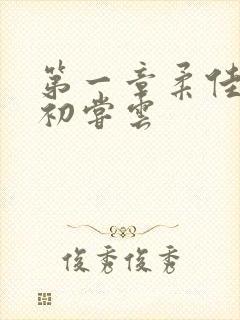 第一章柔佳
初尝云
俊秀俊秀